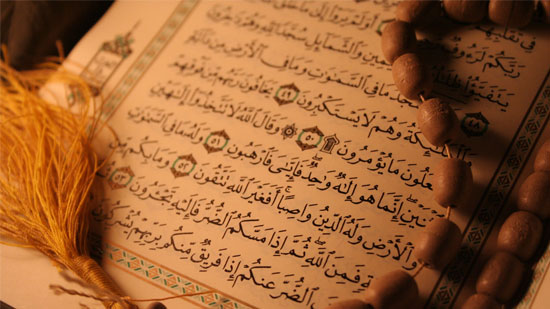 فِى تَقَلُّبِهِمْ
رَبَّكُمْ لَرَءُوفٌ أَوَلَمْ يَرَوْا إِلَىٰ مَا خَلَقَ
يَتَفَيَّؤُا ظِلَٰلُهُ وَالشَّمَآئِلِ سُجَّدًا لِّلَّهِ
يَسْجُدُ مَا فِى السَّمَٰوَٰتِ وَمَا فِى الْأَرْضِ مِن دَآبَّةٍ
وَالْمَلَٰٓئِكَةُ وَهُمْ لَا يَسْتَكْبِرُونَ ٤٩ يَخَافُونَ رَبَّهُم مِّن فَوْقِهِمْ
وَيَفْعَلُونَ مَا يُؤْمَرُونَ ۩ ٥٠ وَقَالَ اللَّهُ لَا تَتَّخِذُوٓا إِلَٰهَيْنِ
اثْنَيْنِ إِنَّمَا هُوَ إِلَٰهٌ وَٰحِدٌ فَإِيَّٰىَ فَارْهَبُونِ ٥١ وَلَهُ مَا فِى السَّمَٰوَٰتِ
وَالْأَرْضِ وَلَهُ الدِّينُ وَاصِبًا أَفَغَيْرَ اللَّهِ تَتَّقُونَ ٥٢ وَمَا بِكُم مِّن
فَمِنَ اللَّهِ ثُمَّ إِذَا مَسَّكُمُ الضُّرُّ فَإِلَيْهِ تَجْـَٔرُونَ ٥٣
الضُّرَّ عَنكُمْ إِذَا فَرِيقٌ مِّنكُم بِرَبِّهِمْ يُشْرِكُونَ